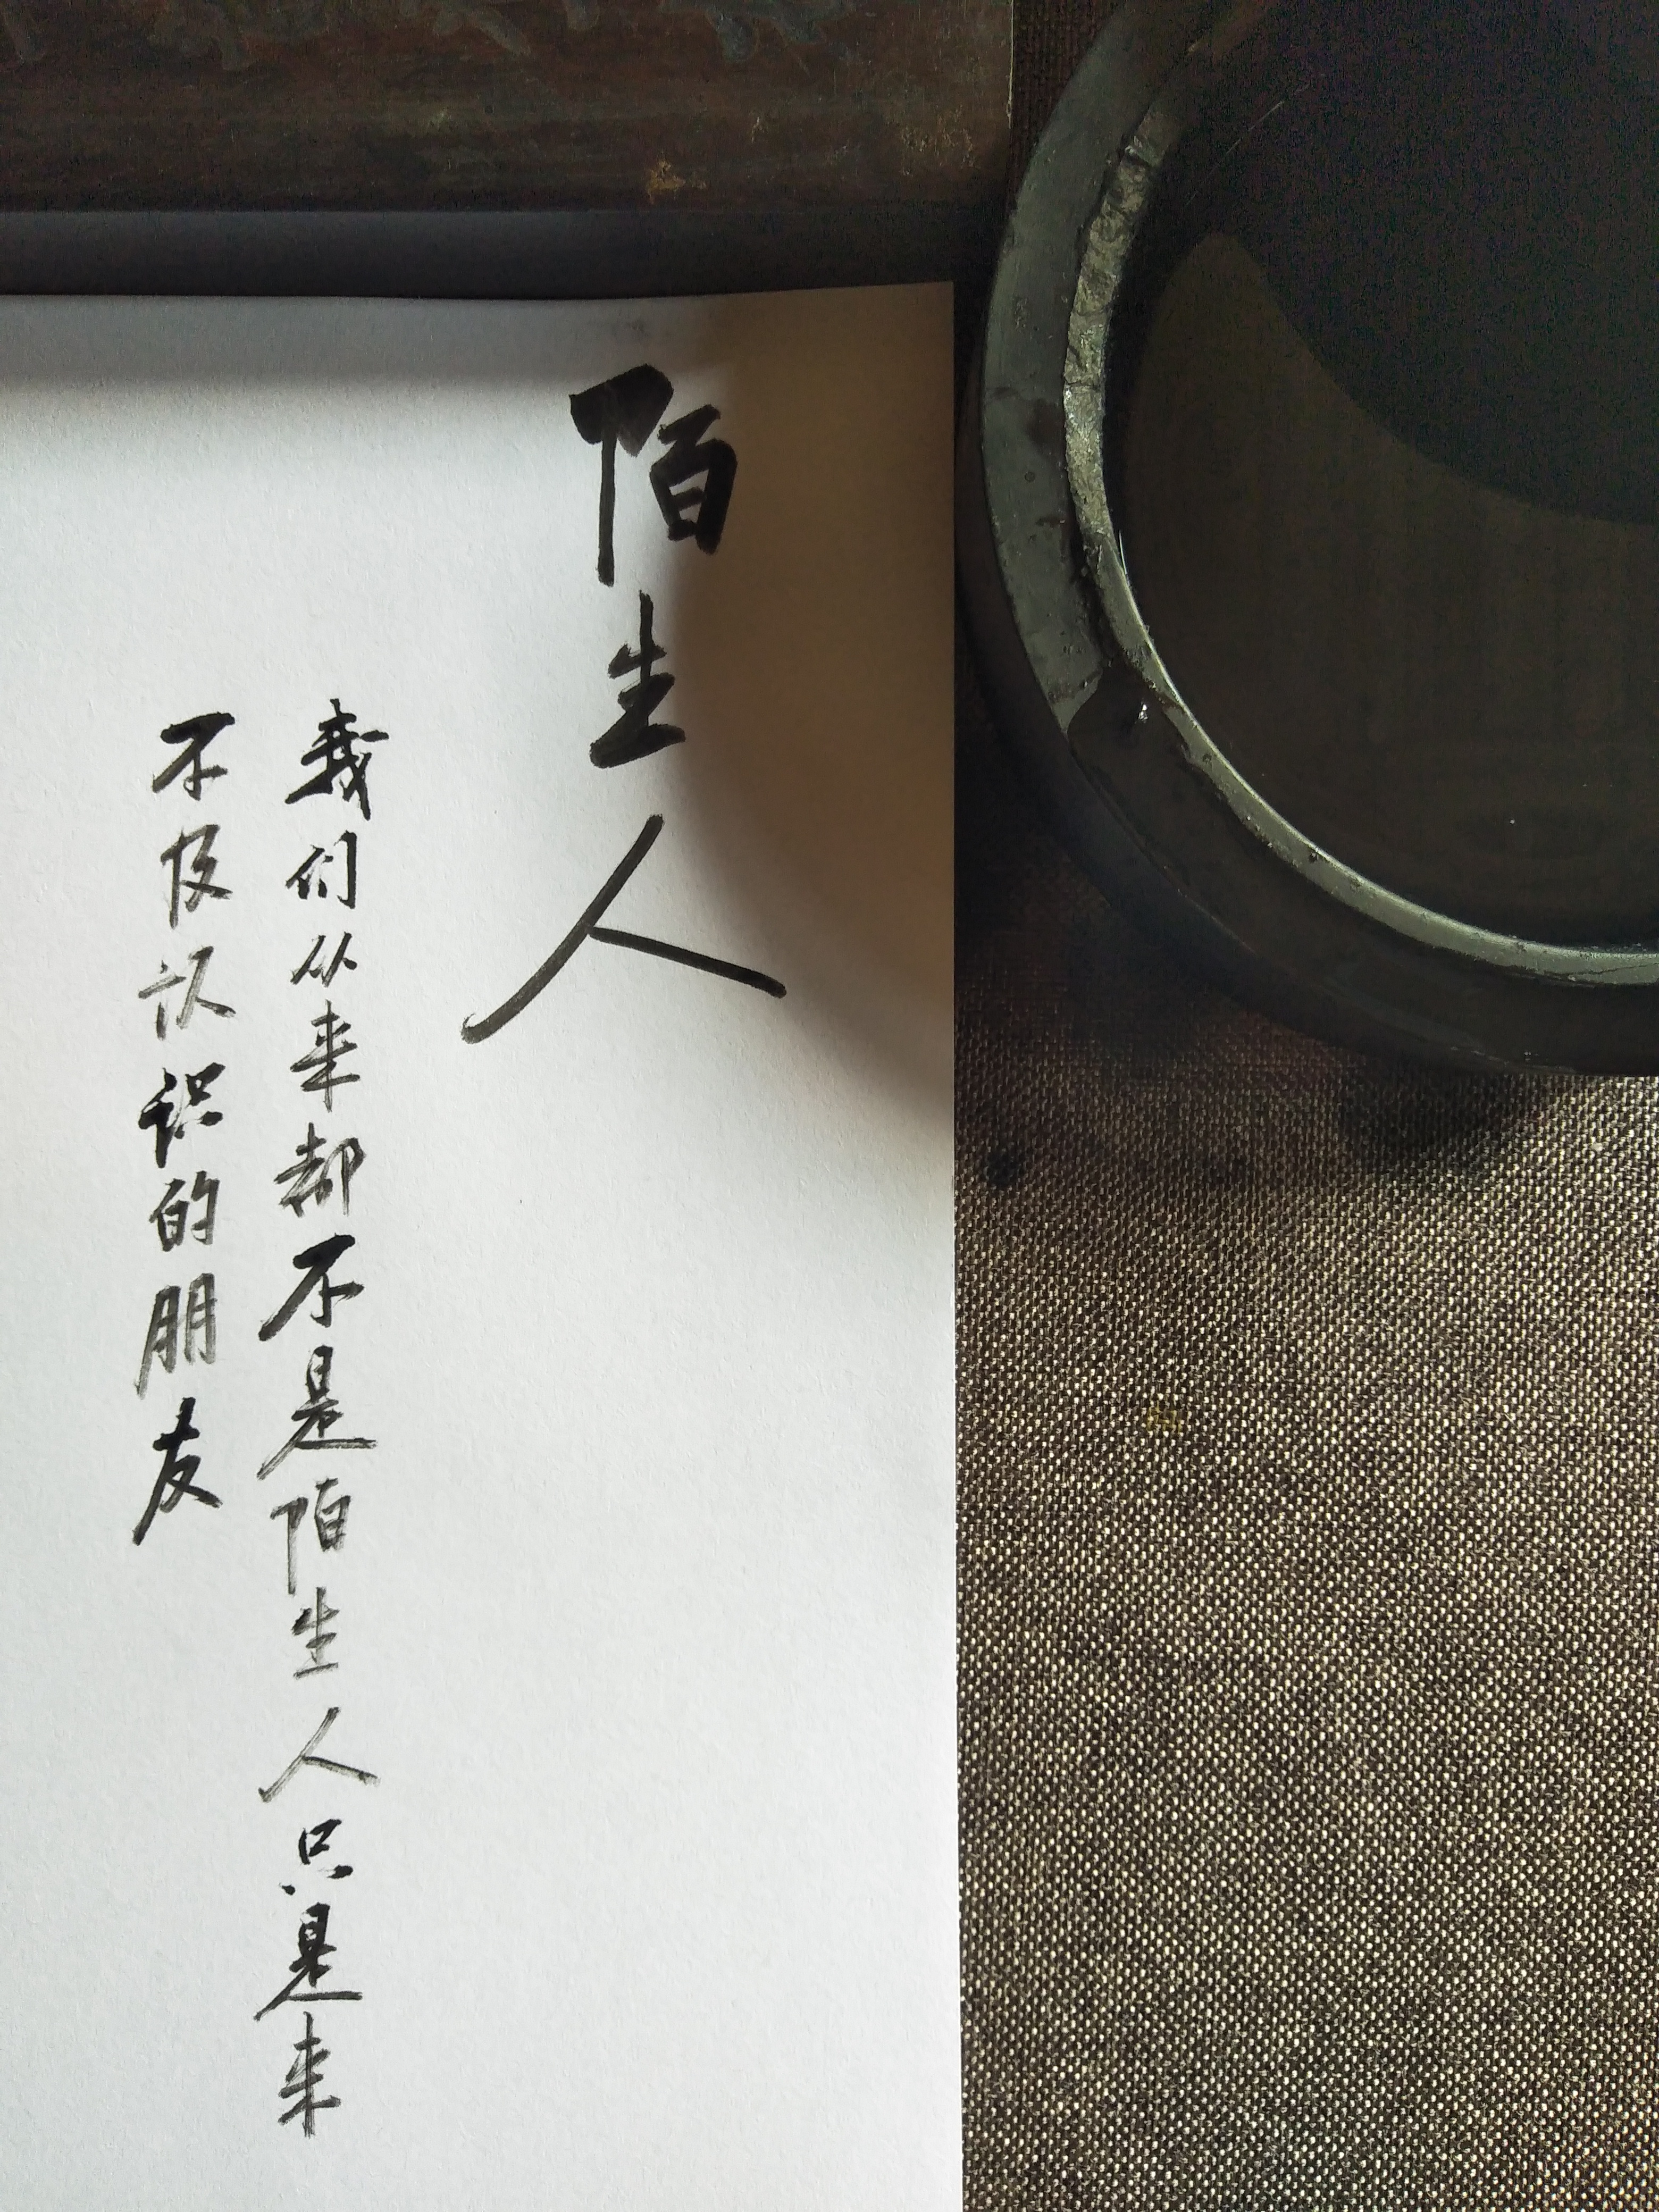 陌生人
我们从来都不是陌生人只是来
不及认识的朋友